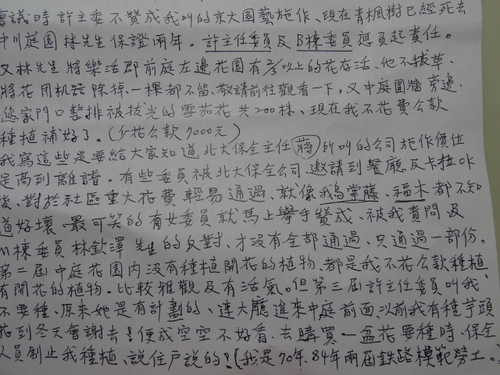 會議時許主委不贊成我叫的京大園藝施作、現在青楓樹已經死去
中川庭園林先生保證兩年。許主任委員及B棟委員應負起責任。
又林先生將樂活郡前庭左邊花園有3以上的花存活、他不拔草、
將花用机器除掉一棵都不留、敬請前往觀看一下,又中庭圍牆旁邊.
家門口整排被拔光的雪茄花共200林、現在我不花費公款
種植補好了。(介花公款7000元)
我寫這些是要給大家知道、北大保全主任(蔣)所叫的公司施作價位
是高到離譜。有些委員被北大保全公司邀請到餐廳及卡拉咔
後、對於社區重大花費輕易通過、就像我島常藤、福木都不知
道好壞、最可笑的有女委員就馬上舉手贊成、被我責問及
棟委員林欽澤先生的反對、才沒有全部通過、只通過一部份。
第二屆中庭花園內沒有種植開花的植物、都是我不花公款種植
有開花的植物。比較雅觀及有活氣。但第三屆許主任委員叫我
不要種、原來她是有計劃的、連大廳進來中庭前面以前我有種芋頭
花到冬天會謝去!使成空空不好看、去購買一盆花要種時、保全
人員制止我種植、說住戶說的!(我是70年.84年兩屆鐵路模範勞工。)